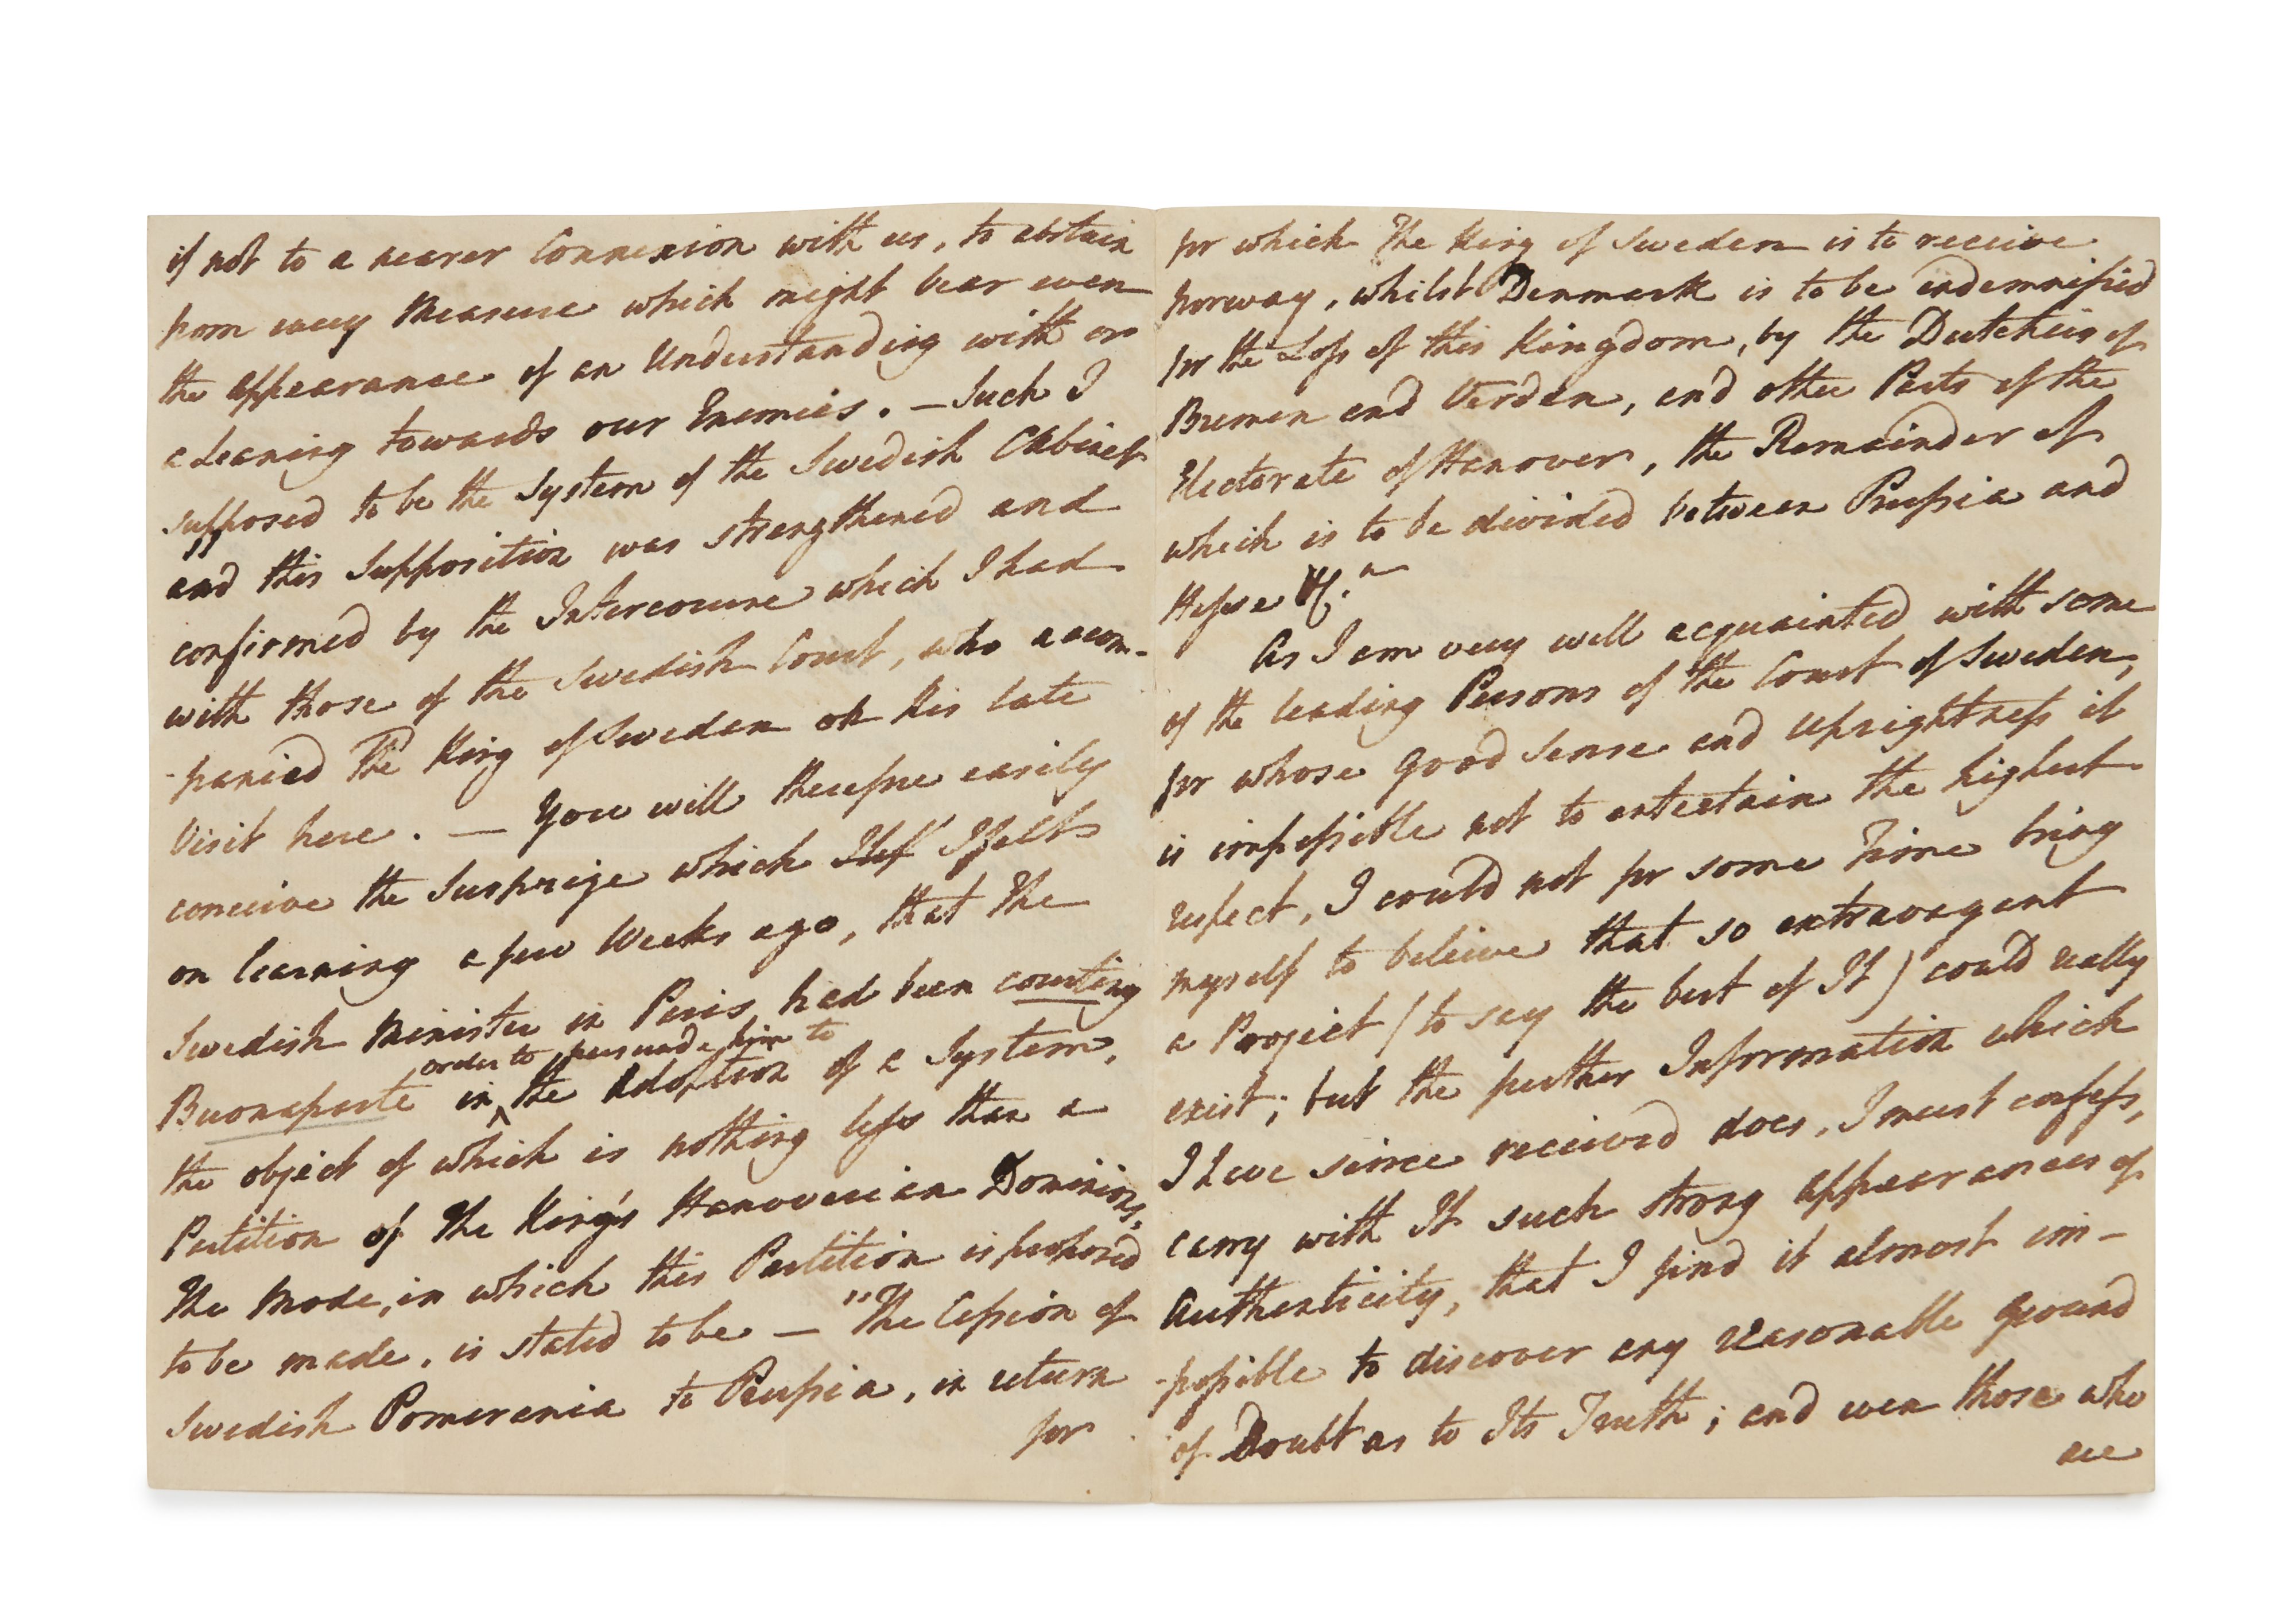 if not to a nearer Connexion with us, to abstain
from every Measure which might bear even
the appearance of an Understanding with or
a Leaning towards our Enemies. — Such I
supposed to be the System of the Swedish Cabinet
and this Supposition was strengthened and
confirmed by the Intercourse which I had
with those of the Swedish Court, who accom-
-panied The King of Sweden on his late
Visit here. — You will therefore easily
conceive the Surprize which I felt
on learning a few Weeks ago, that the
Swedish Minister in Paris had been courting
order to persuade him to
Buonaparte in ^ the Adoption of a System,
the object of which is nothing less than a
Partition of The King's Hanoverian Dominions,
The Mode, in which this Partition is proposed
to be made, is stated to be — "The Cession of
Swedish Pomerania to Prussia, in return
for
for which The King of Sweden is to receive
Norway, whilst Denmark is to be indemnified
for the Loss of this Kingdom, by the Dutchies of
Bremen and Verden, and other Parts of the
Electorate of Hanover, the Remainder of
which is to be divided between Prussia and
Hesse."
As I am very well acquainted with some
of the leading Persons of the Court of Sweden,
for whose good Sense and Uprightness it
is impossible not to entertain the highest
respect, I could not for some Time bring
myself to believe that so extravagant
a Project (to say the best of It) could really
exist; but the further Information which
I have since received does, I must confess,
carry with It such strong appearances of
Authenticity, that I find it almost im-
-possible to discover any reasonable Ground
of Doubt as to Its Truth; and even those who
are